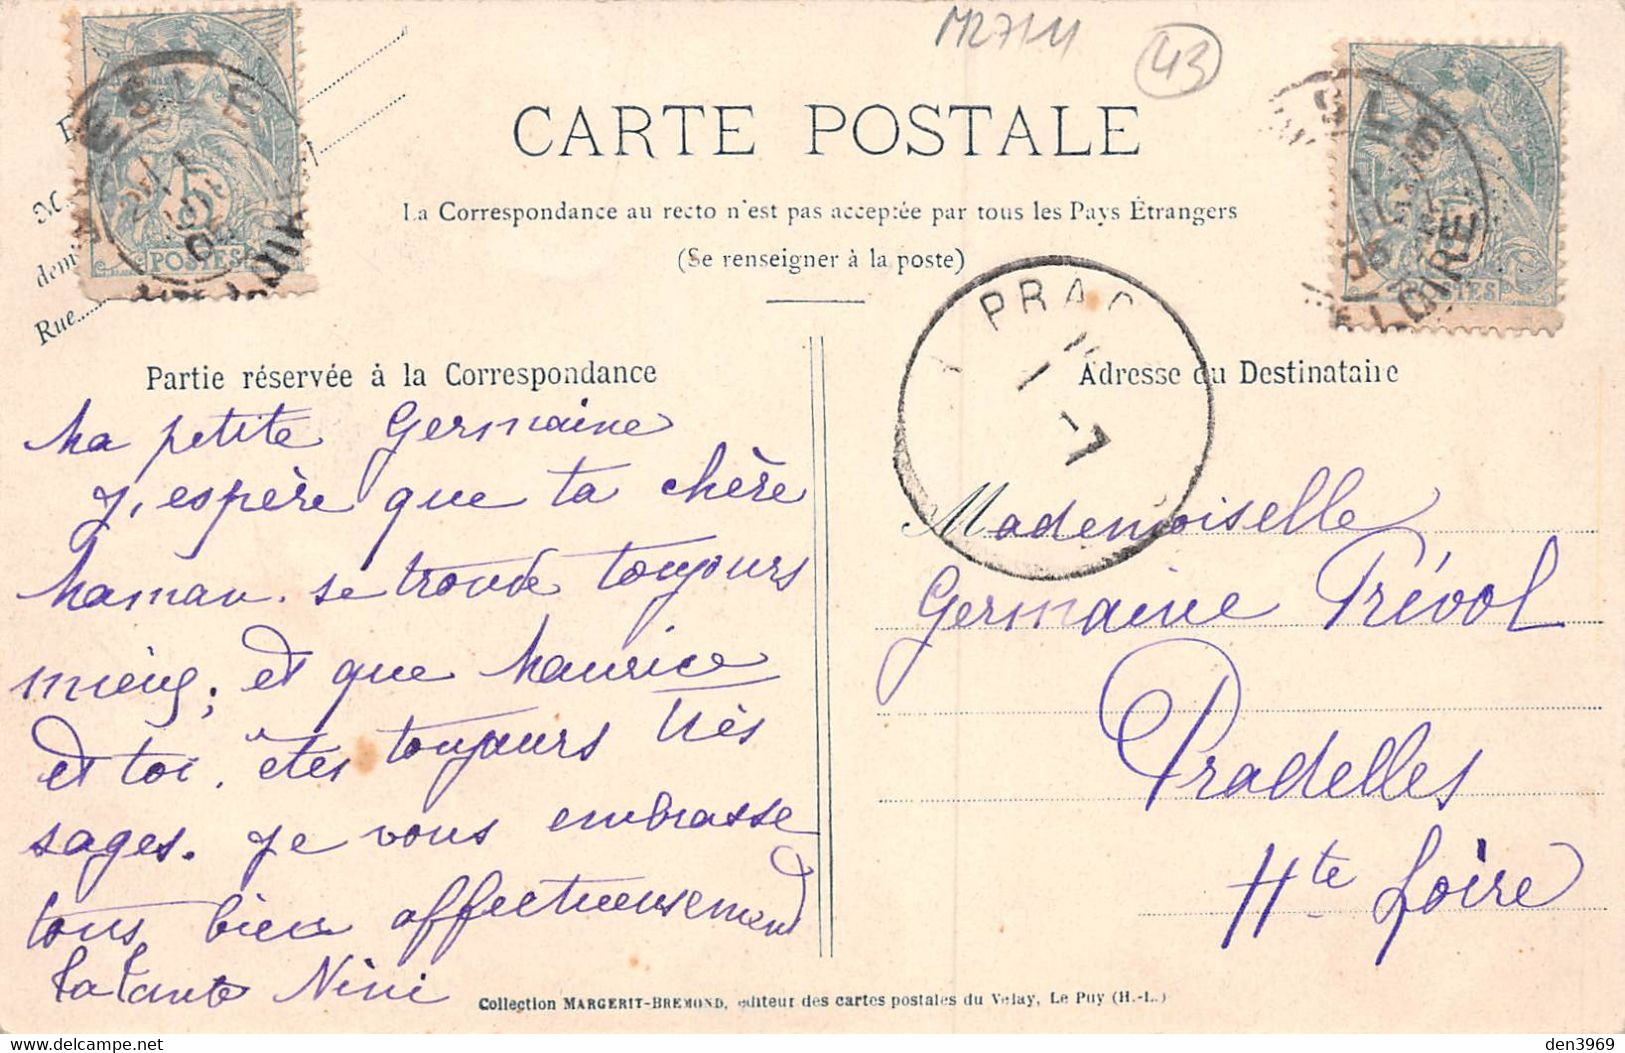 M27111
43
CARTE POSTALE
La Correspondance au recto n'est pas acceptée par tous les Pays Étrangers
(Se renseigner à la poste)
Rue
POSTES
5
LOIRE
PRAD
Partie réservée à la Correspondance
Ma petite Germaine
J'espère que ta chère
Maman se trouve toujours
mieux; et que Maurice
et toi, êtes toujours très
sages. Je vous embrasse
tous bien affectueusement
ta tante Nini
Adresse du Destinataire
Mademoiselle
Germaine Prévot
Pradelles
Hte Loire
Collection MARGERIT-BREMOND, éditeur des cartes postales du Velay, Le Puy (H.-L.)
den3969